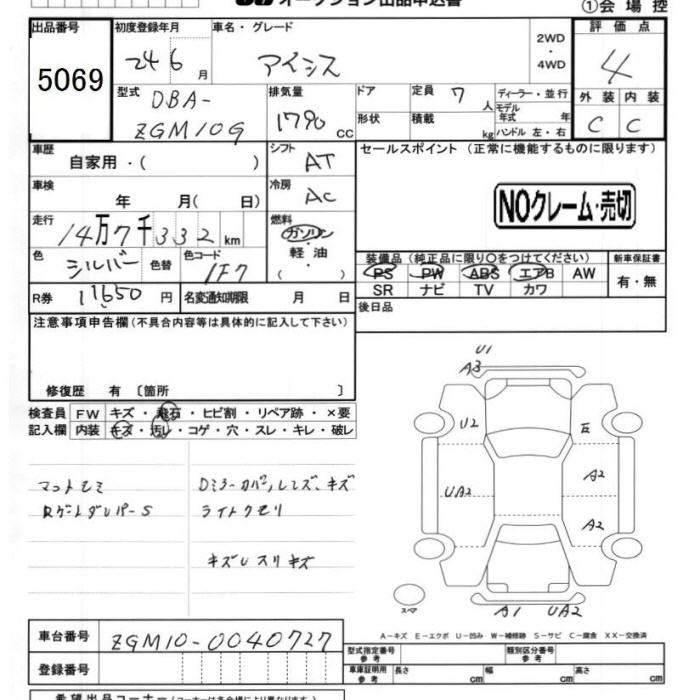 オークション出品申込書
①会場控
出品番号
5069
初度登録年月
24 6 月
車名・グレード
アイシス
2WD
・
4WD
評価点
4
外装 内装
C C
型式
DBA-
ZGM10G
排気量
1790 CC
ドア
形状
定員 7 人
積載 kg
ディーラー・並行
モデル年式 年
ハンドル 左・右
車歴
自家用・( )
シフト
AT
セールスポイント (正常に機能するものに限ります)
NOクレーム・売切
車検
年 月( 日)
冷房
AC
走行
14万7千332 km
燃料
ガソリン
・
軽油
( )
色
シルバー
色替
色コード
1F7
装備品 (純正品に限り○をつけてください)
PS PW ABS エアB AW
SR ナビ TV カワ
新車保証書
有・無
R券 11650 円
名変通知期限 月 日
後日品
注意事項申告欄(不具合内容等は具体的に記入して下さい)
修復歴 有 〔箇所 〕
検査員 FW キズ・飛石・ヒビ割・リペア跡・×要
記入欄 内装 キズ・汚レ・コゲ・穴・スレ・キレ・破レ
マットモミ
Dミラーカバー,レンズ、キズ
ライトクモリ
キズUスリキズ
U1
A3
U2
UA2
A2
A2
スペア
A1 UA2
A-キズ E-エクボ U-凹み W-補修跡 S-サビ C-腐食 XX-交換済
車台番号 ZGM10-0040727
登録番号
型式指定番号
参考
類別区分番号
参考
車庫証明用
参考
長さ cm 幅 cm 高さ cm
希望出品コーナー(コーナーは各会場により異なります)